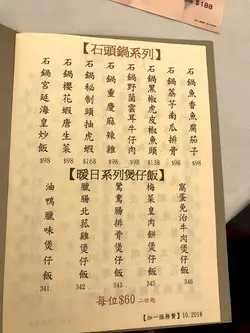 $188
【石頭鍋系列】
石鍋魚香魚腐茄子
$98
石鍋荔芋南瓜排骨
$98
石鍋黑椒虎皮魚頭
$138
石鍋野菌雲耳牛仔肉
$98
石鍋重慶麻辣雞
$98
石鍋秘制頭抽虎蝦
$168
石鍋櫻花蝦唐生菜
$98
石鍋宮廷海皇炒飯
$98
【暖日系列煲仔飯】
窩蛋免治牛肉煲仔飯
346
梅菜皇肉餅煲仔飯
345.
鴛鴦腸排骨煲仔飯
343.
臘腸北菰雞煲仔飯
342.
油鴨臘味煲仔飯
341.
每位$60 二位起
【加一服務費】10.2018